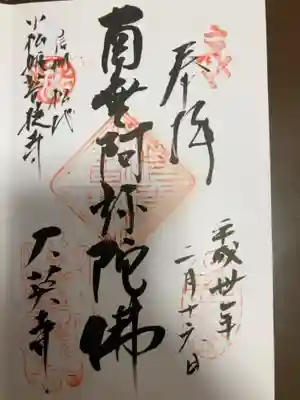 奉拝
平成卅一年
二月十六日
南無阿弥陀佛
信州 松代
小松姫菩提寺
大英寺